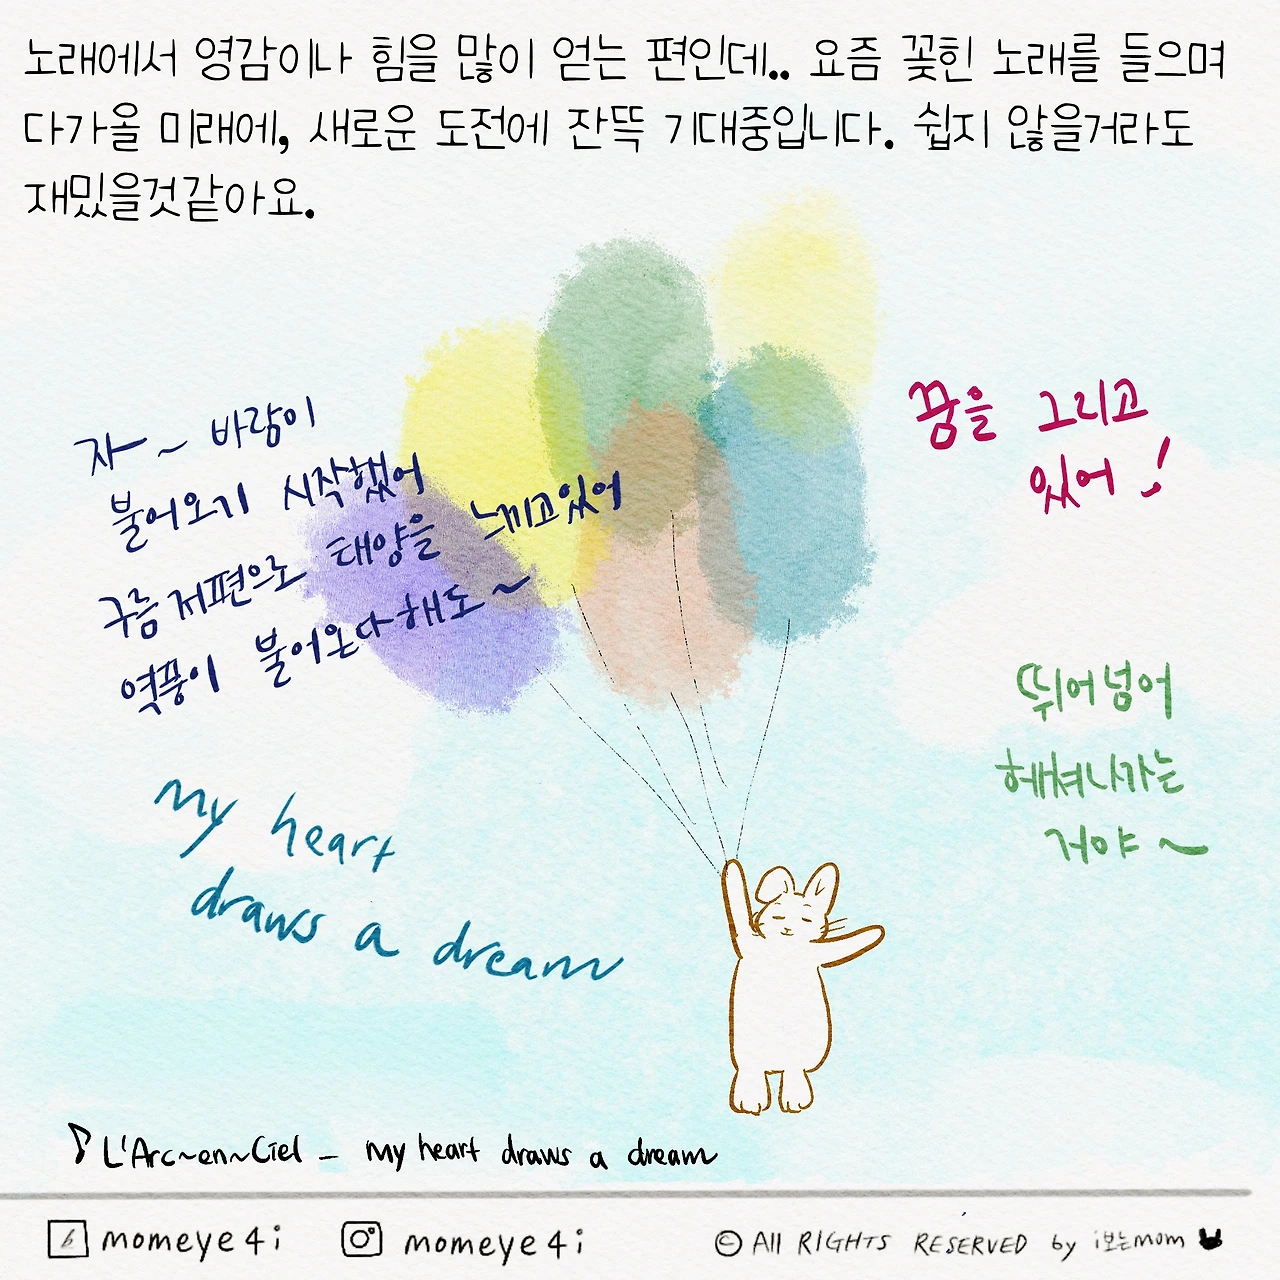 노래에서 영감이나 힘을 많이 얻는 편인데.. 요즘 꽂힌 노래를 들으며
다가올 미래에, 새로운 도전에 잔뜩 기대중입니다. 쉽지 않을거라도
재밌을것같아요.
자~ 바람이
불어오기 시작했어
구름 저편으로 태양을 느끼고있어
역풍이 불어온다해도~
꿈을 그리고
있어!
뛰어넘어
헤쳐나가는
거야~
my heart
draws a dream
♪ L'Arc~en~Ciel - my heart draws a dream
b momeye4i momeye4i © All RIGHTS RESERVED by i보는mom